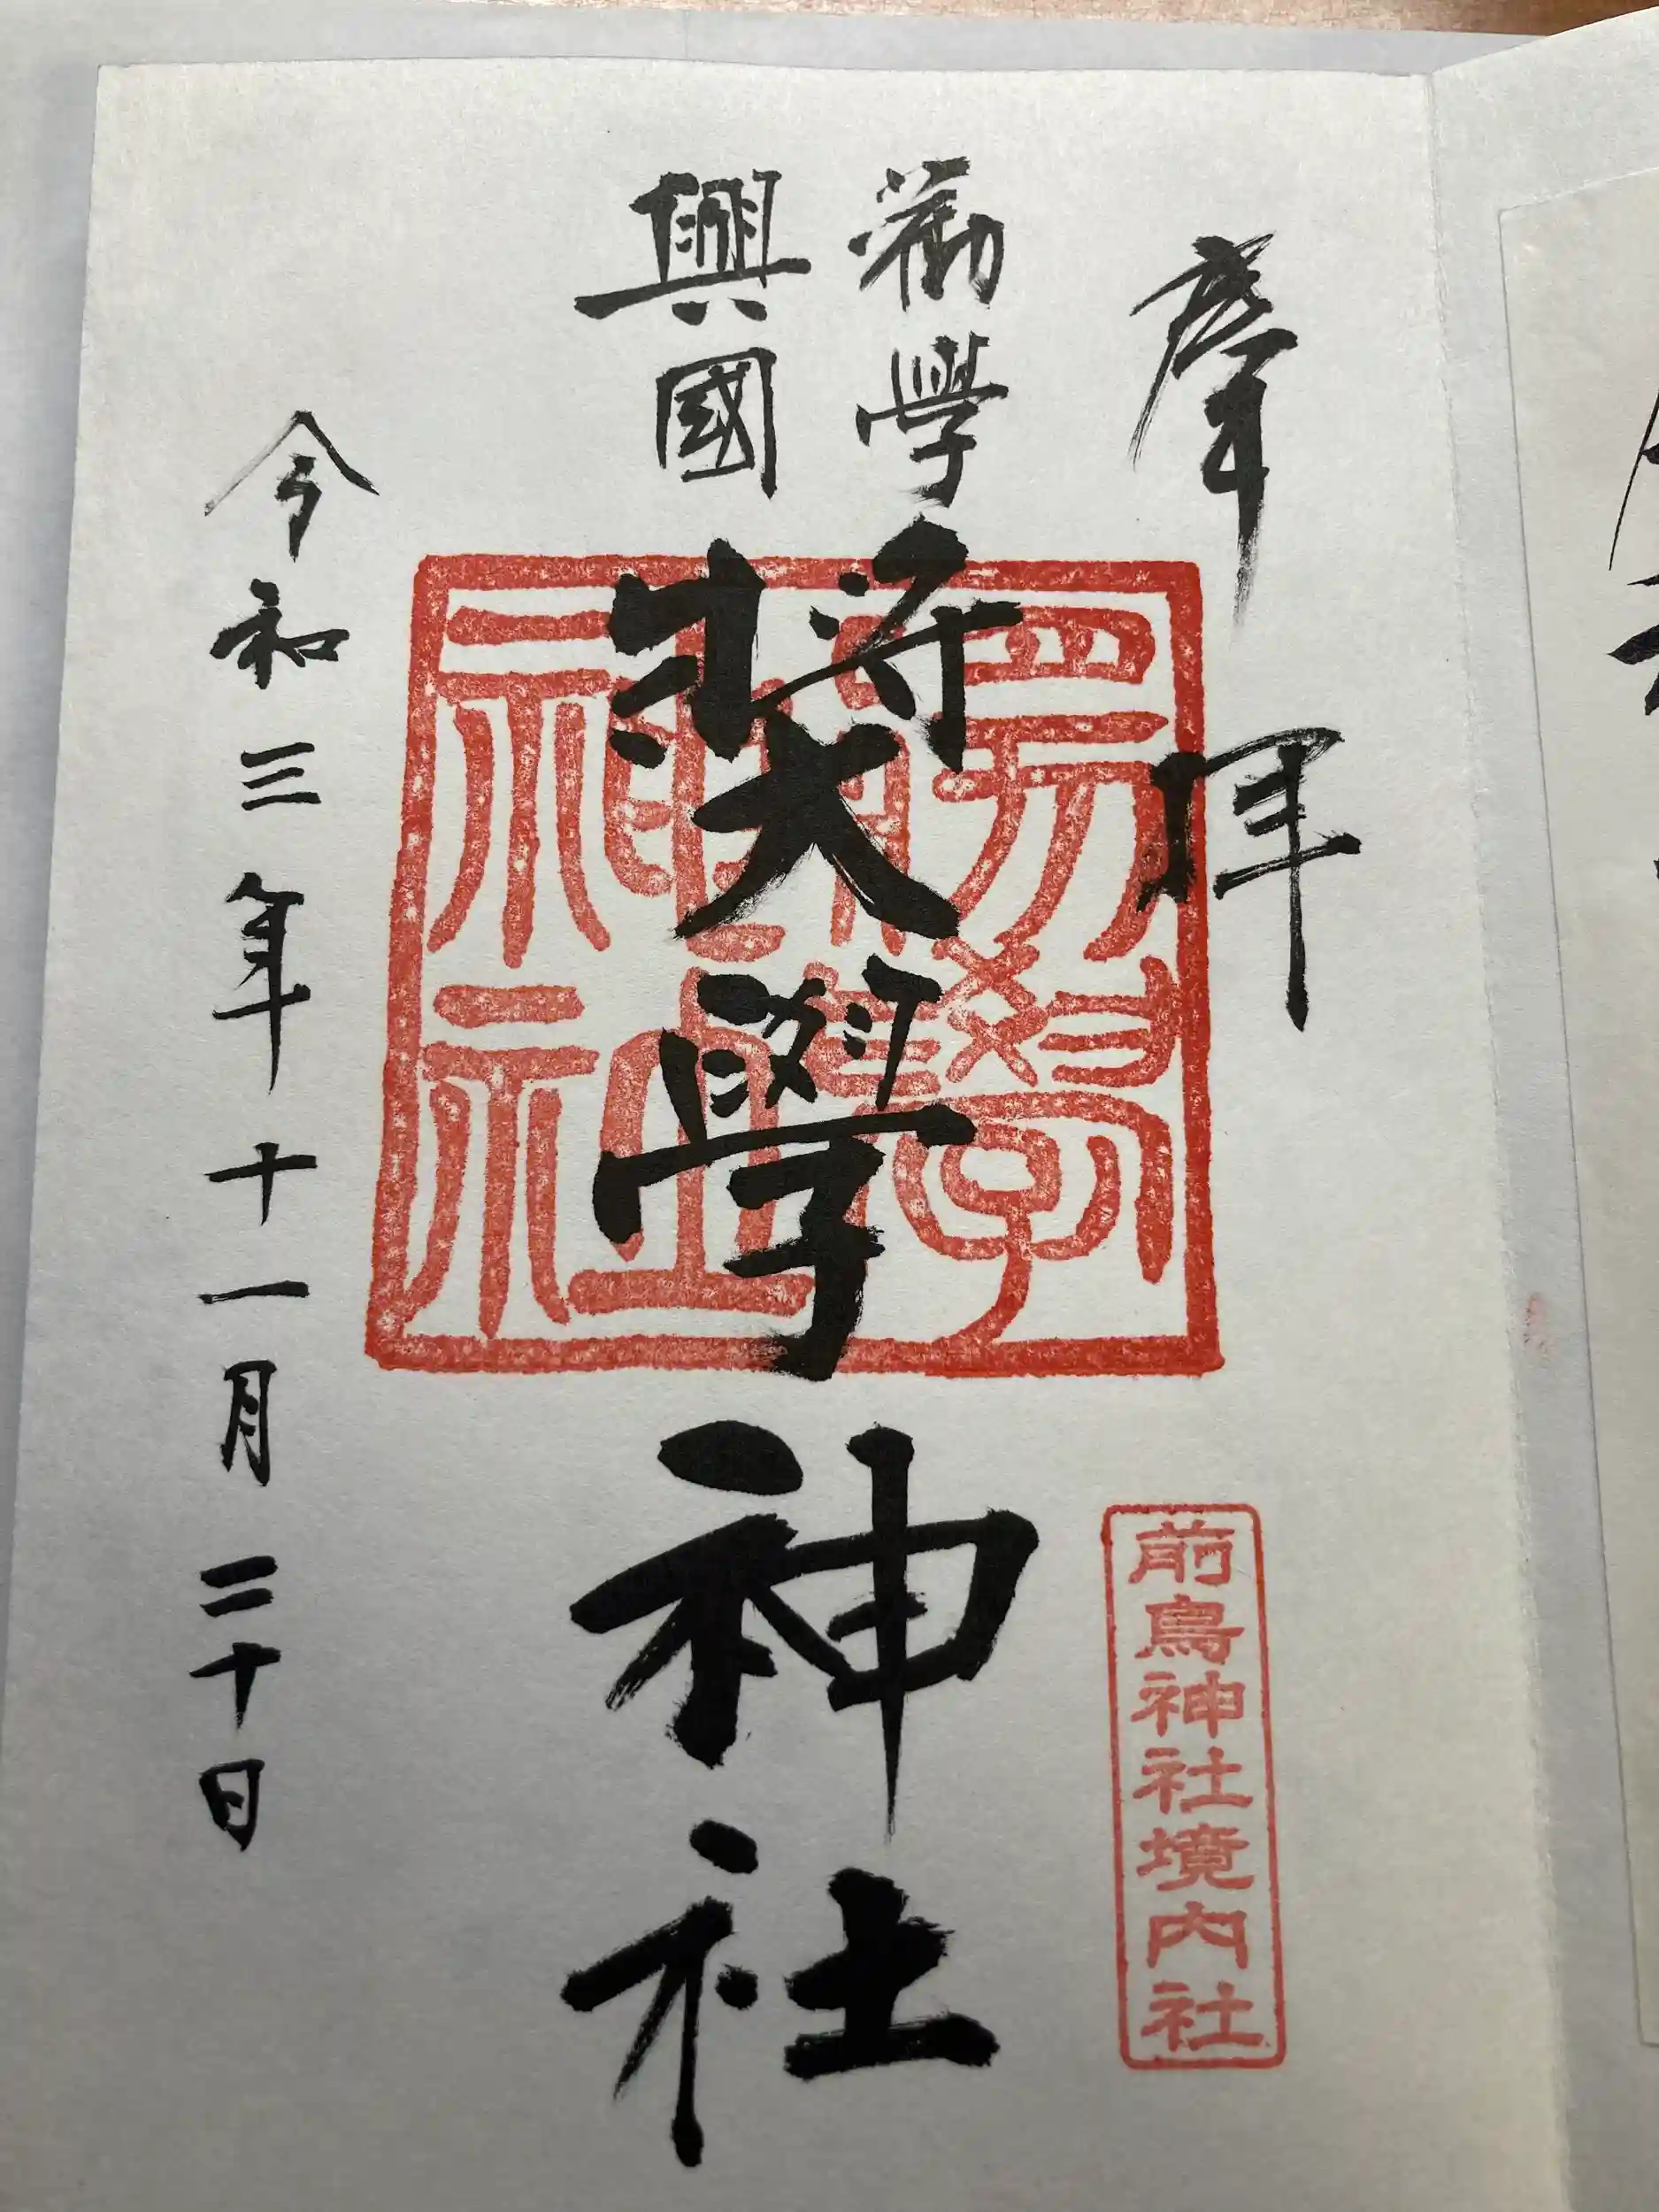 奉拝
勧學
興國
奬學神社
前鳥神社境内社
令和三年十一月二十日